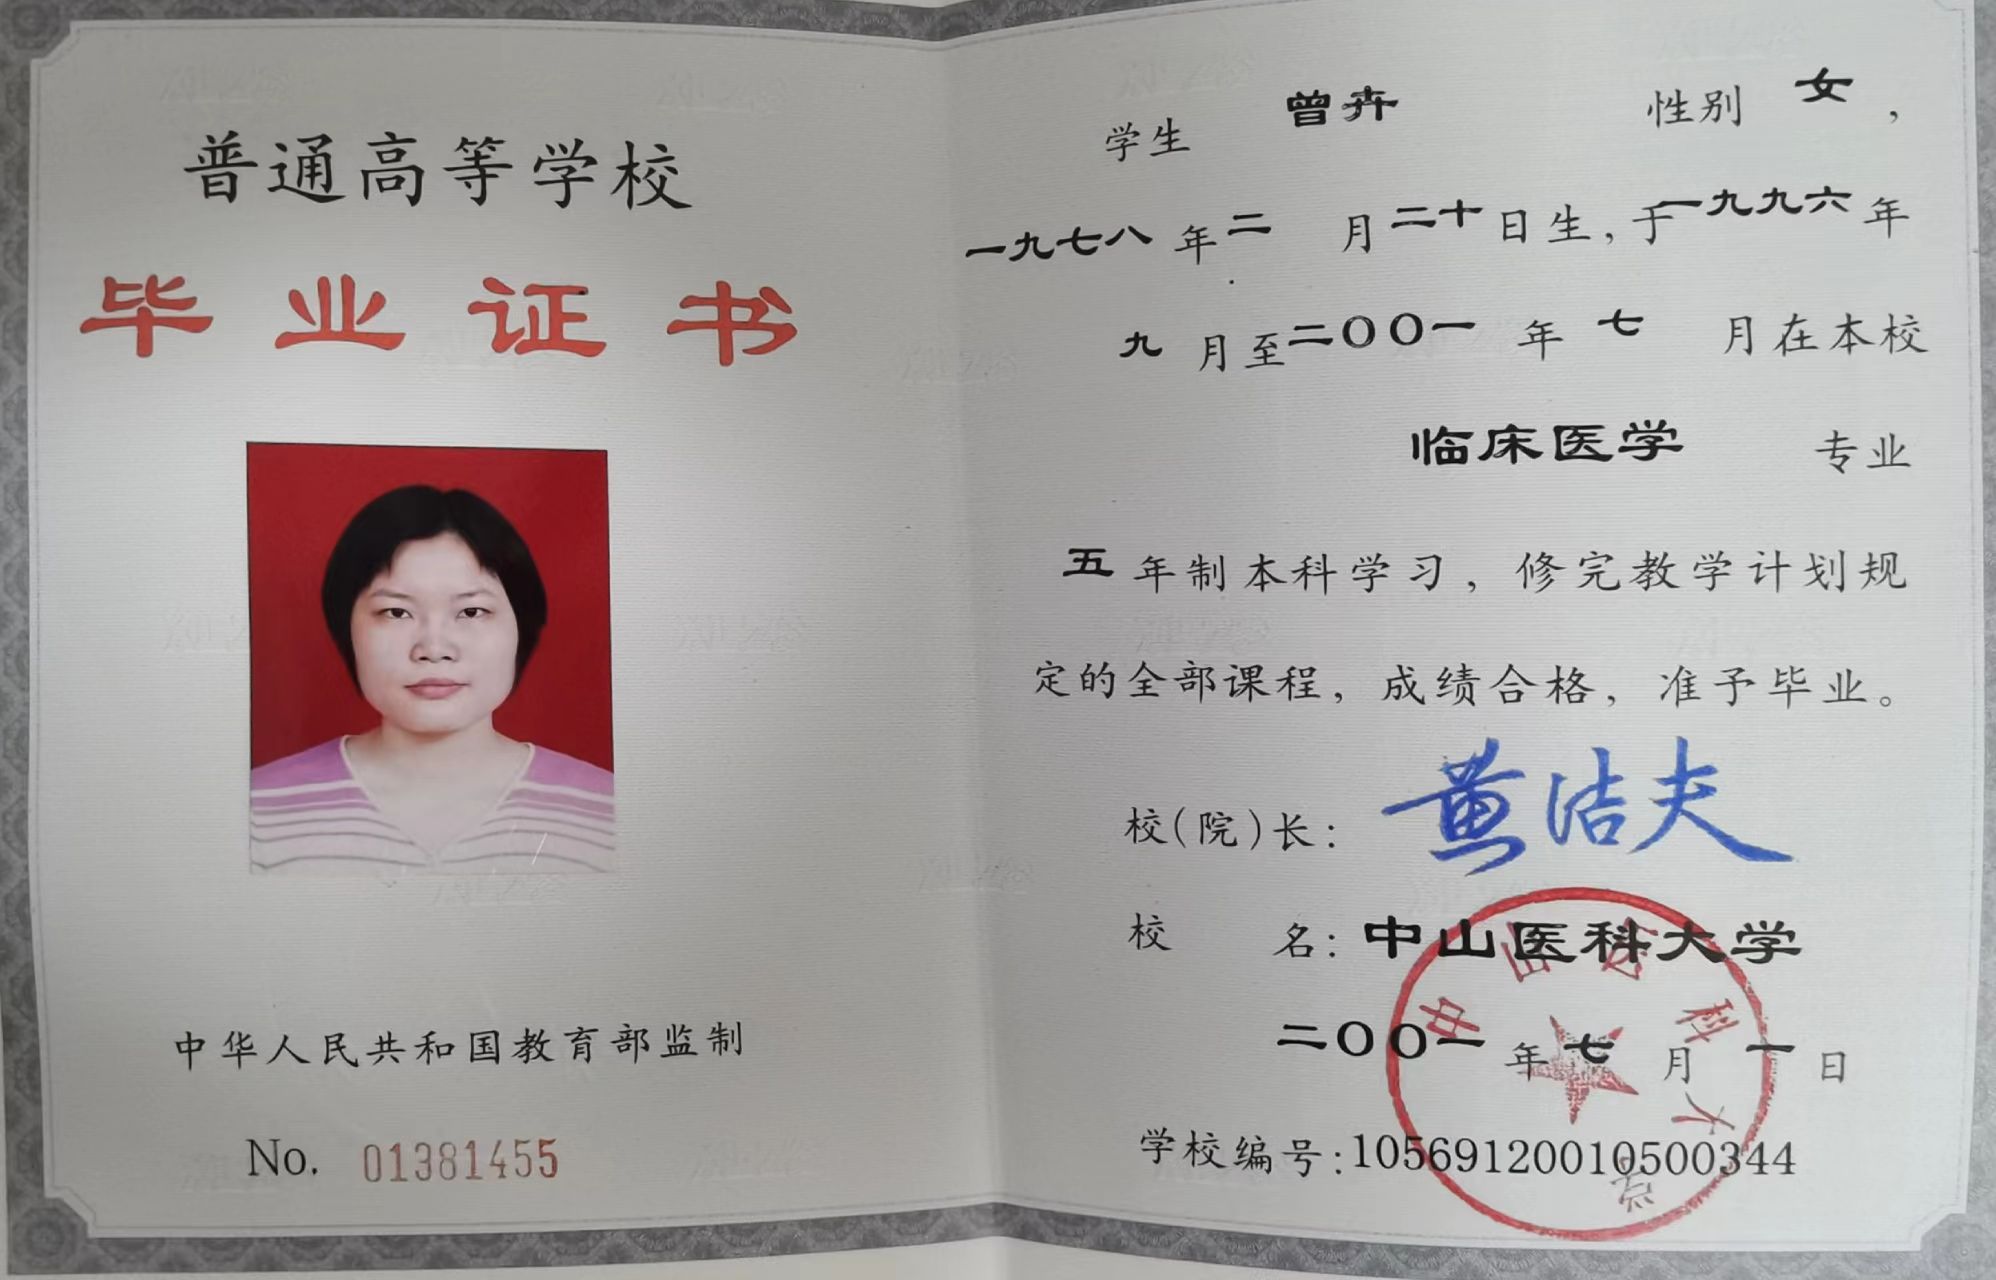 普通高等学校
毕业证书
中华人民共和国教育部监制
No. 01381455
学生 曾卉 性别 女，
一九七八年二月二十日生，于一九九六年
九月至二〇〇一年七月在本校
临床医学 专业
五年制本科学习，修完教学计划规
定的全部课程，成绩合格，准予毕业。
校(院)长：黄洁夫
校 名：中山医科大学
二〇〇一年七月一日
学校编号：10569120010500344
中山医科大学